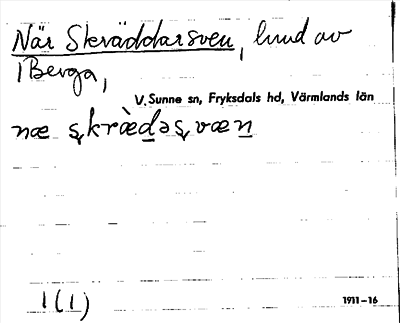 När Skräddarsven, lund av
1 Berga,
V. Sunne sn, Fryksdals hd, Värmlands län
næ s̨krædəs̨væn
1(1)
1911–16